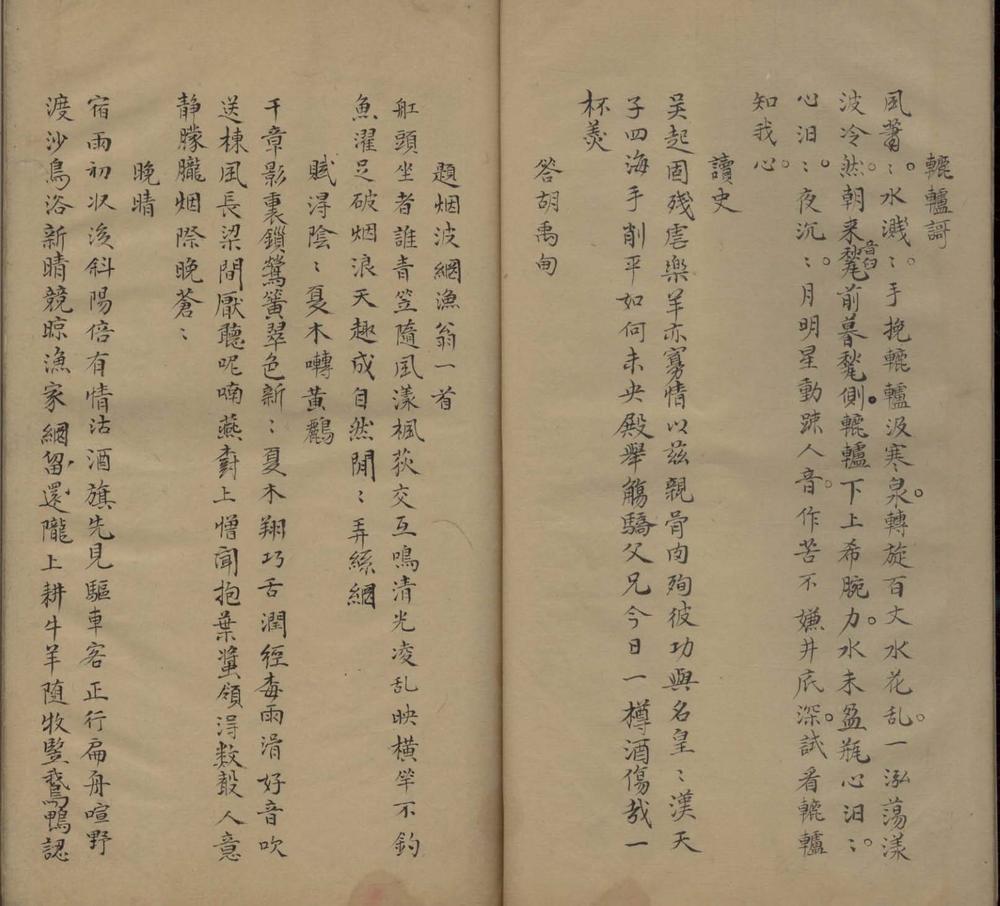 轆轤謌
風蕭〻水濺〻手挽轆轤汲寒泉轉旋百丈水花乱一泓蕩漾
波冷然朝来甃音㕮前暮甃側轆轤下上希腕力水未盈瓶心汨〻
心汨〻夜沉〻月明星動踈人音作苦不嫌井底深試看轆轤
知我心
讀史
吴起固殘虐樂羊亦寡情以兹親骨肉殉彼功與名皇〻漢天
子四海手削平如何未央殿舉觴驕父兄今日一樽酒傷哉一
杯羹
答胡禹甸
題烟波綱漁翁一首
舡頭坐者誰青笠隨風漾楓荻交互鳴清光凌乱映横竿不釣
魚濯足破烟浪天趣成自然閒〻弄絲綱
賦淂陰〻夏木囀黄鸝
千章影裏鎖鶯簧翠色新〻夏木翔巧舌潤經毎雨滑好音吹
送棟風長梁間厭聽呢喃燕樹上憎聞抱葉螿領淂数聲人意
静朦朧烟際晚蒼〻
晚晴
宿雨初収後斜陽倍有情沽酒旗先見驅車客正行扁舟喧野
渡沙鳥浴新晴競晾漁家綱留還隴上耕牛羊随牧竪鵞鴨認